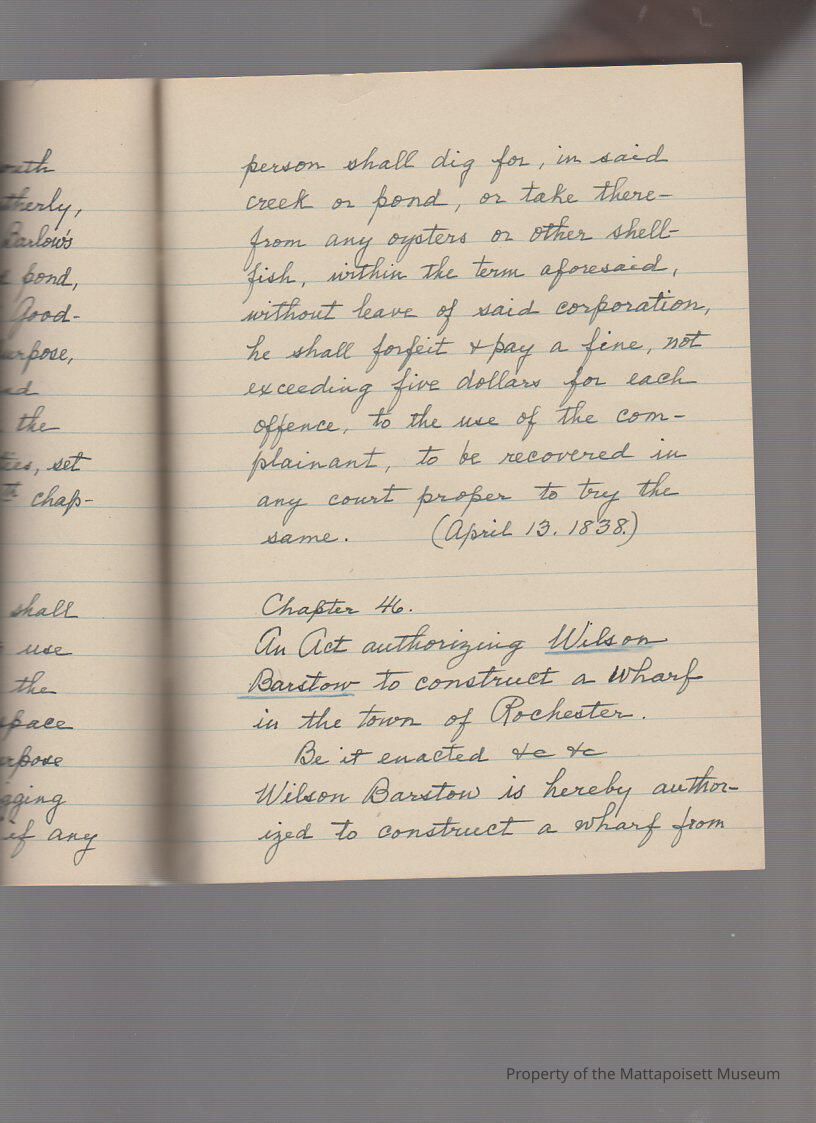 therly,
Barlow's
pond,
Good-
purpose,
the
set
chap-
shall
use
the
space
purpose
if any
person shall dig for, in said
creek or pond, or take there-
from any oysters or other shell-
fish, within the term aforesaid,
without leave of said corporation,
he shall forfeit & pay a fine, not
exceeding five dollars for each
offence, to the use of the com-
plainant, to be recovered in
any court proper to try the
same. (April 13. 1838.)
Chapter 46.
An Act authorizing Wilson
Barstow to construct a wharf
in the town of Rochester.
Be it enacted &c &c
Wilson Barstow is hereby author-
ized to construct a wharf from
Property of the Mattapoisett Museum